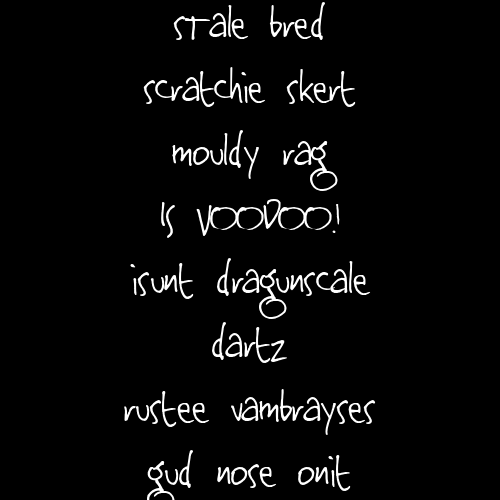 sTale bred
scratchie skert
mouldy rag
is VOODOO!
isunt dragunscale
dartz
rustee vambrayses
gud nose onit